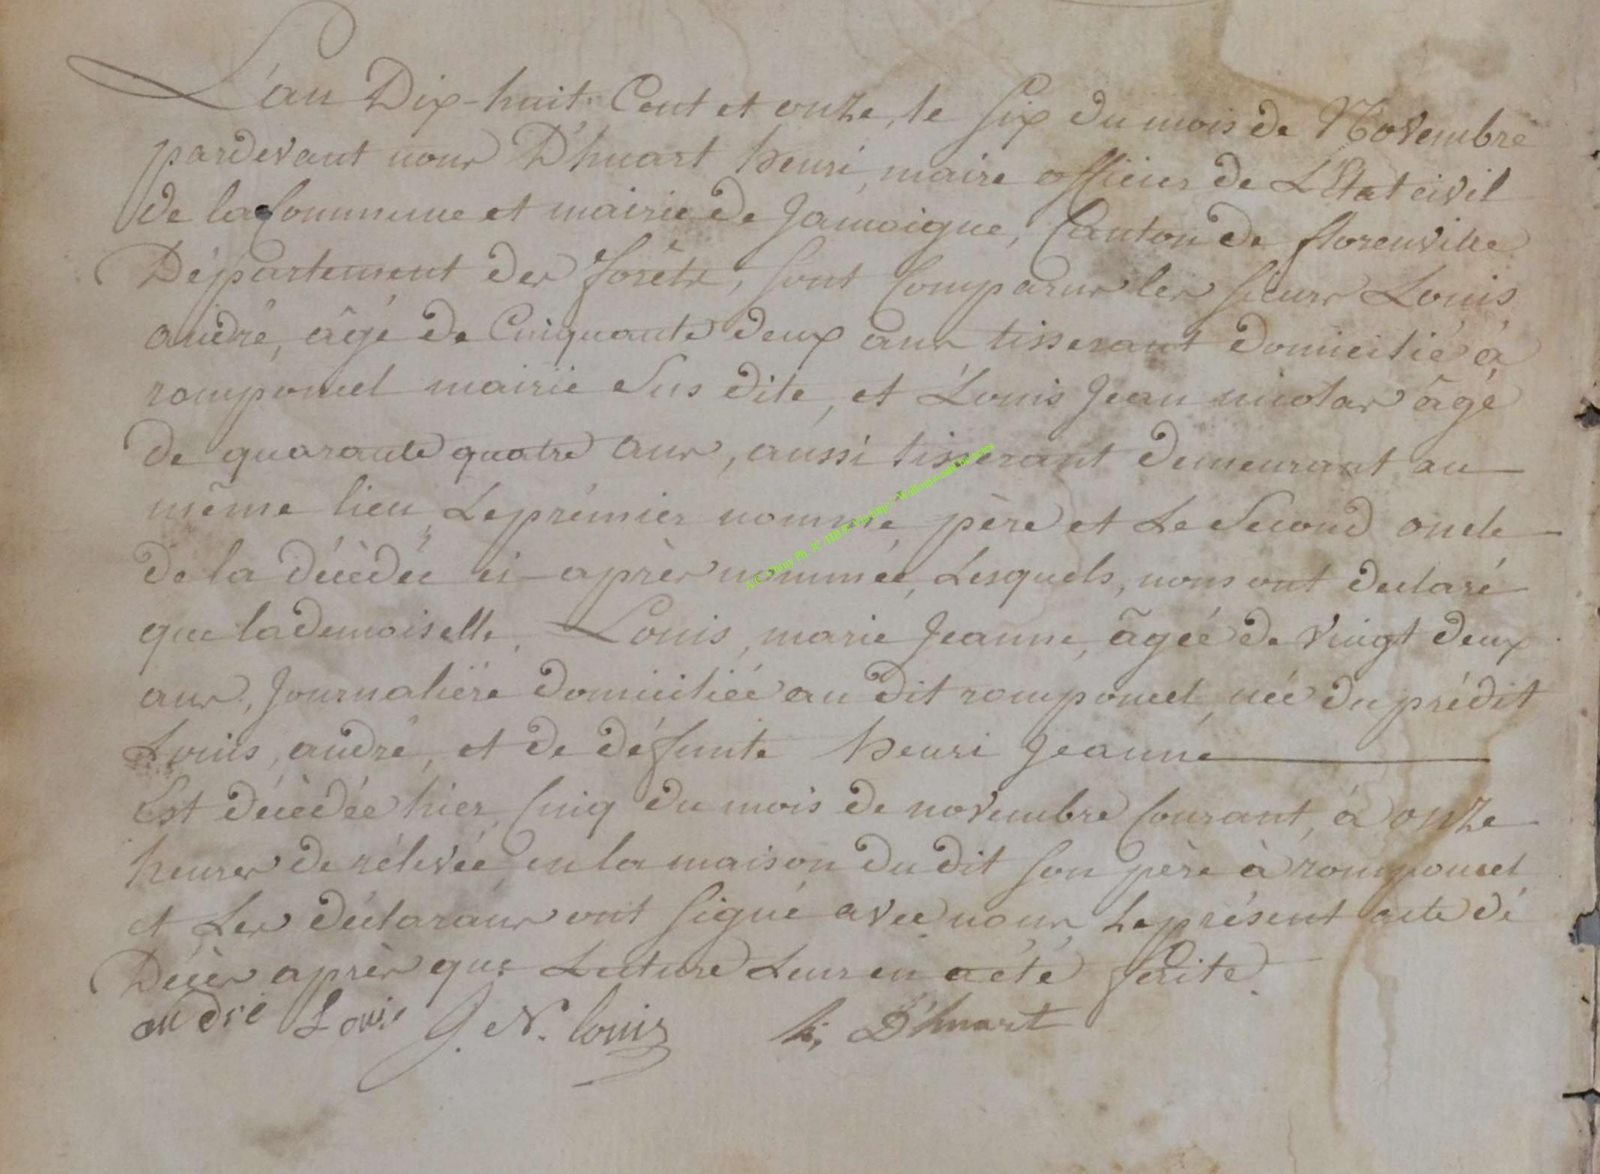 L'an Dix-huit Cent et onze, le six du mois de Novembre
pardevant nous D'huart henri, maire officier de L'Etat civil
de la Commune et mairie de Jamoigne, Canton de florenville
Département des forêts, sont Comparus les sieurs Louis
andré, âgé de Cinquante deux ans tisserant domicilié à
romponcel mairie sus dite, et Louis Jean nicolas âgé
de quarante quatre ans, aussi tisserant demeurant au
même lieu, Le prémier nommé, père et Le Second oncle
de la décèdée ci-après nommée, Lesquels, nous ont declaré
que la demoiselle, Louis, marie Jeanne, âgée de vingt deux
ans, Journalière domiciliée au dit romponcel, née du prédit
Louis, andré, et de défunte henri Jeanne
Est décèdée hier, Cinq du mois de novembre Courant, à onze
heures de rélevée en la maison du dit son père à romponcel
et Les déclarans ont signé avec nous Le présent acte dé
Décès après que Lecture Leur en a été faite.
andré Louis J. N. louis h; D'huart